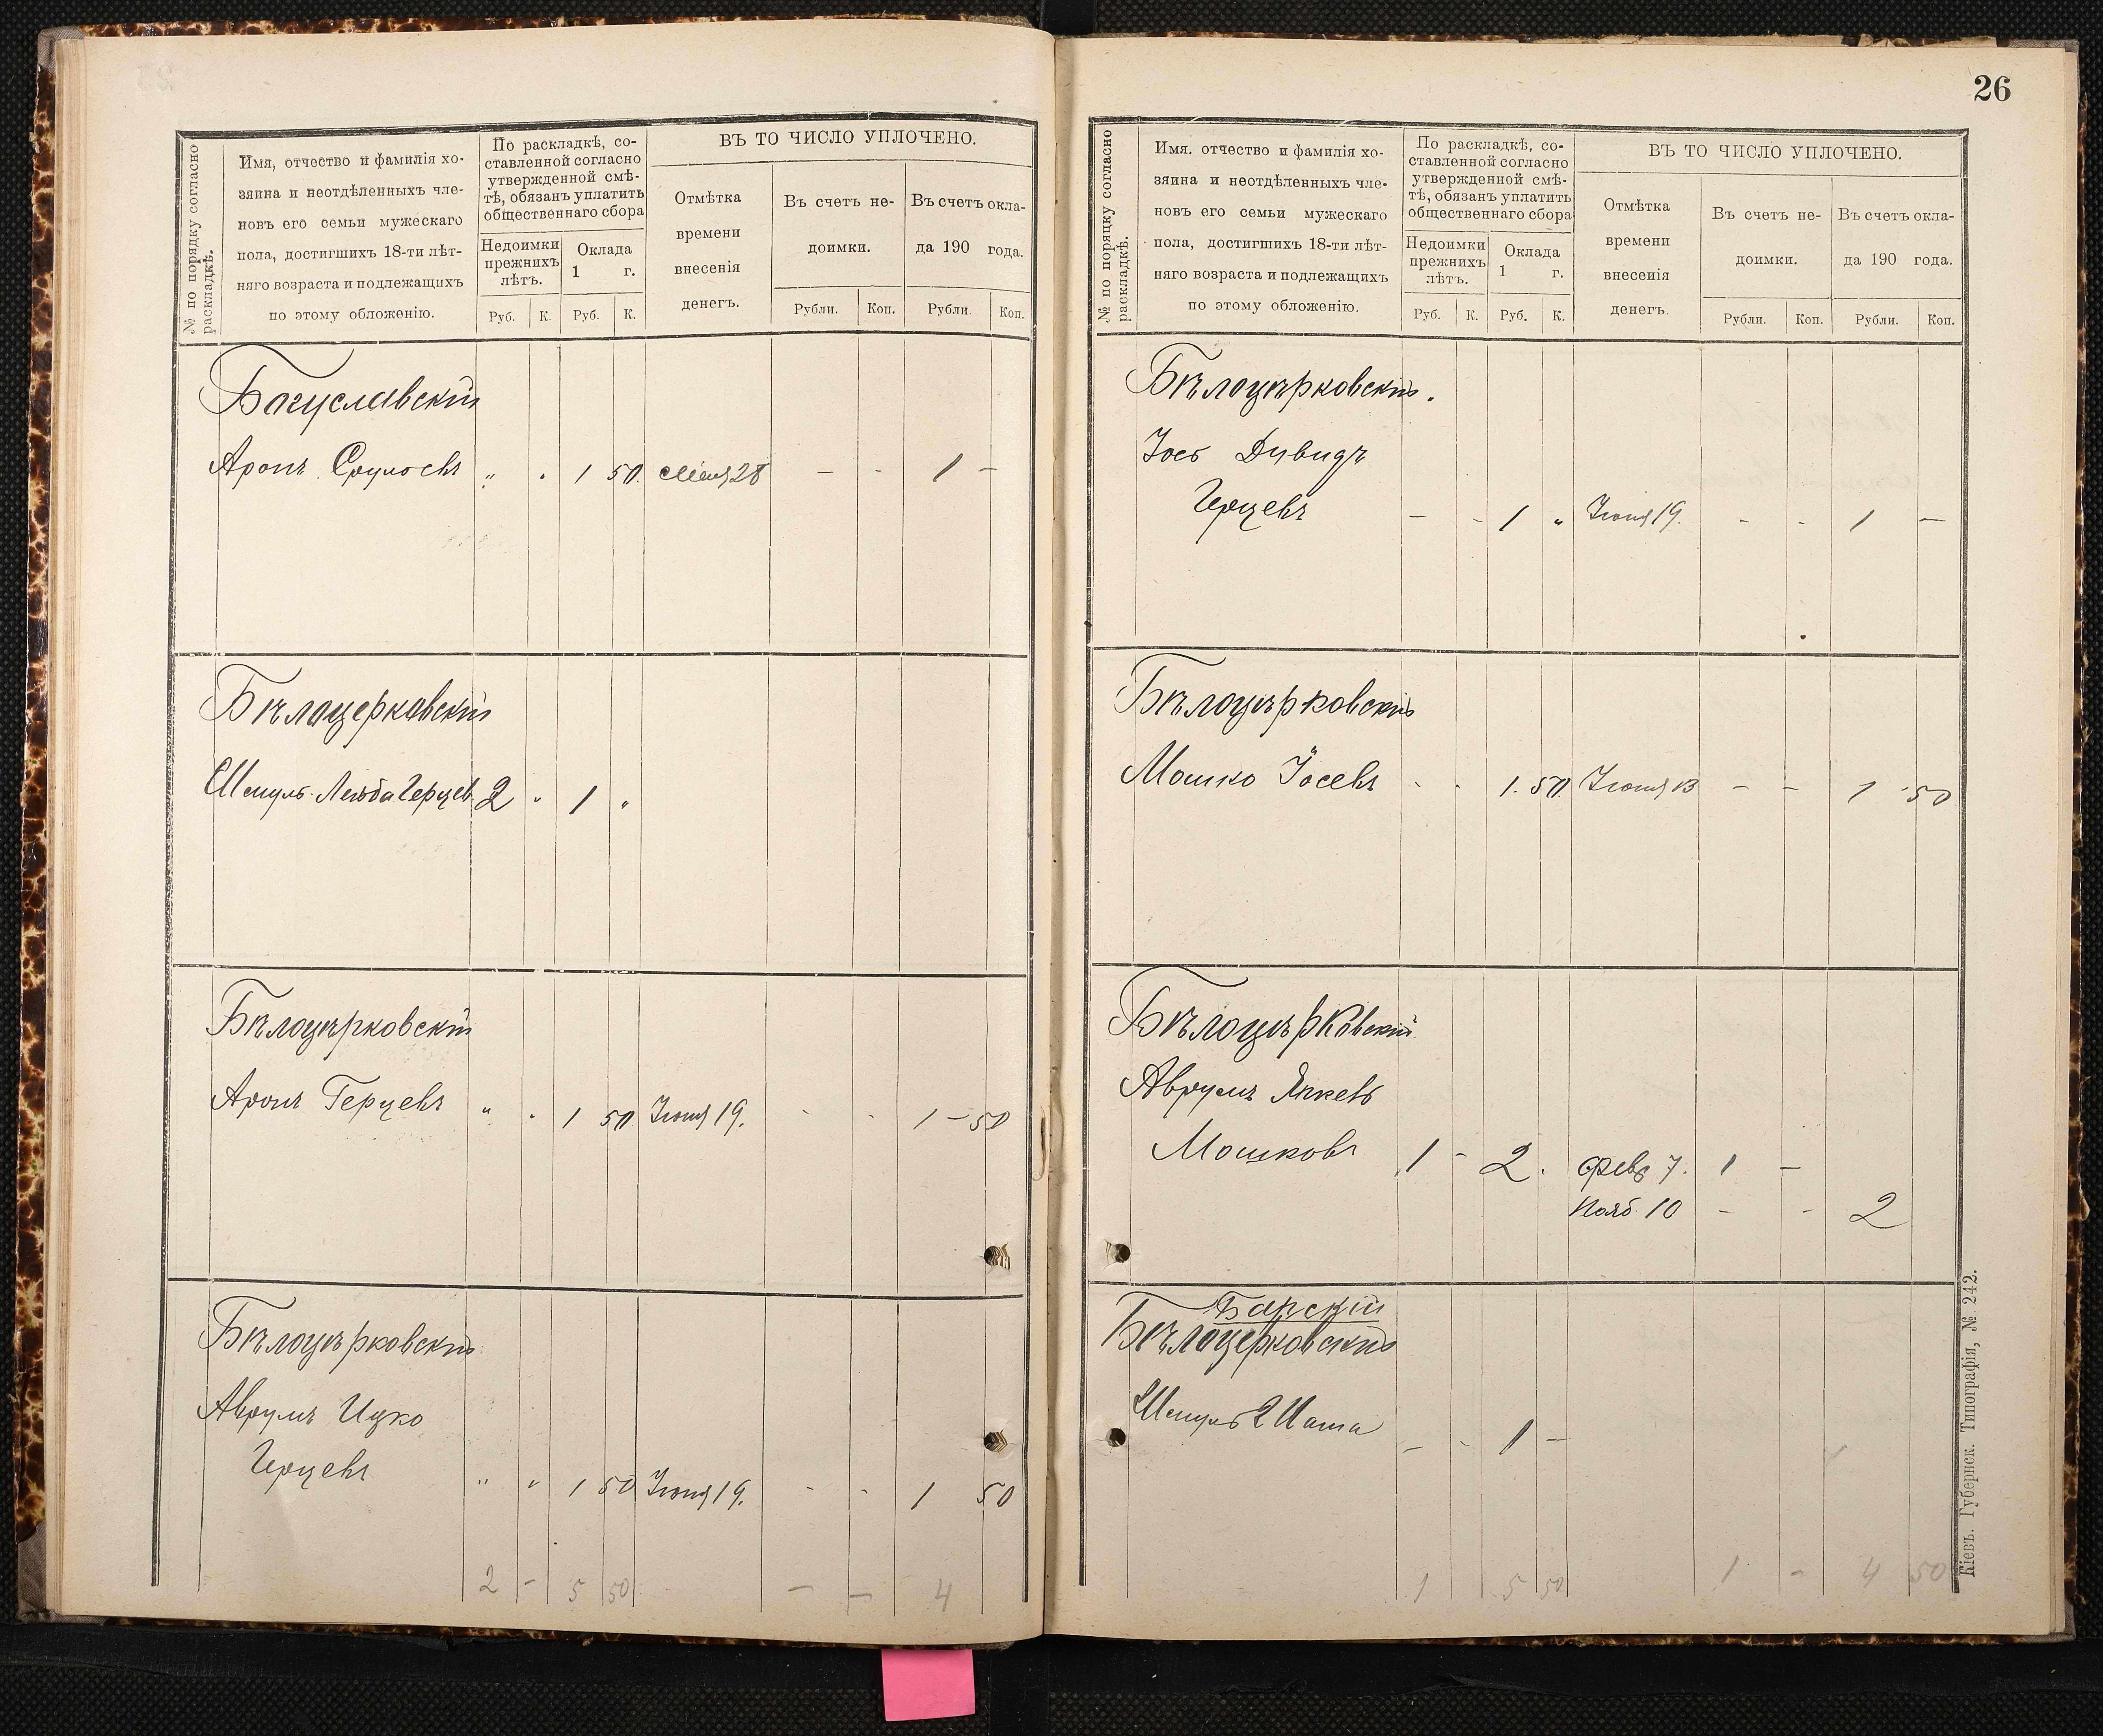 № по порядку согласно раскладкѣ.
Имя, отчество и фамилія хо-
зяина и неотдѣленныхъ чле-
новъ его семьи мужескаго
пола, достигшихъ 18-ти лѣт-
няго возраста и подлежащихъ
по этому обложенію.
По раскладкѣ, со-
ставленной согласно
утвержденной смѣ-
тѣ, обязанъ уплатить
общественнаго сбора
Недоимки прежнихъ лѣтъ.
Оклада 1 г.
Руб. К. Руб. К.
ВЪ ТО ЧИСЛО УПЛОЧЕНО.
Отмѣтка
времени
внесенія
денегъ.
Въ счетъ не-
доимки.
Въ счетъ окла-
да 190 года.
Рубли. Коп. Рубли. Коп.
Богуславскій
Аронъ Срулевъ " " 1 50 Мая 28 – – 1 –
Бѣлоцерковскій
Шмуль-Лейба Герцев 2 " 1 "
Бѣлоцѣрковскій
Аронъ Герцевъ " " 1 50 Іюня 19. - - 1 – 50
Бѣлоцѣрковскій
Аврумъ Ицко
Герцевъ " " 1 50 Іюня 19. - - 1 50
2 – 5 50 – – 4
26
№ по поряцку согласно раскладкѣ.
Имя. отчество и фамилія хо-
зяина и неотдѣленныхъ чле-
новъ его семьи мужескаго
пола, достигшихъ 18-ти лѣт-
няго возраста и подлежащихъ
по этому обложенію.
По раскладкѣ, со-
ставленной согласно
утвержденной смѣ-
тѣ, обязанъ уплатить
общественнаго сбора
Недоимки прежнихъ лѣтъ.
Оклада 1 г.
Руб. К. Руб. К.
ВЪ ТО ЧИСЛО УПЛОЧЕНО.
Отмѣтка
времени
внесенія
денегъ.
Въ счетъ не-
доимки.
Въ счетъ окла-
да 190 года.
Рубли. Коп. Рубли. Коп.
Бѣлоцѣрковскій.
Іось Дувидъ
Герцевъ – - 1 " Іюня 19. - - 1 –
Бѣлоцѣрковскій
Мошко Іосевъ - - 1. 50. Іюня 13 – – 1 50
Бѣлоцѣрковскій
Аврумъ Янкель
Мошковъ 1 - 2. Февр 7. 1 –
Нояб 10 - - 2
Барскій
Бѣлоцерковскій
Шмуль – - 1 –
1 5 50 1 - 4 50
Кіевъ. Губернск. Типографія, № 242.